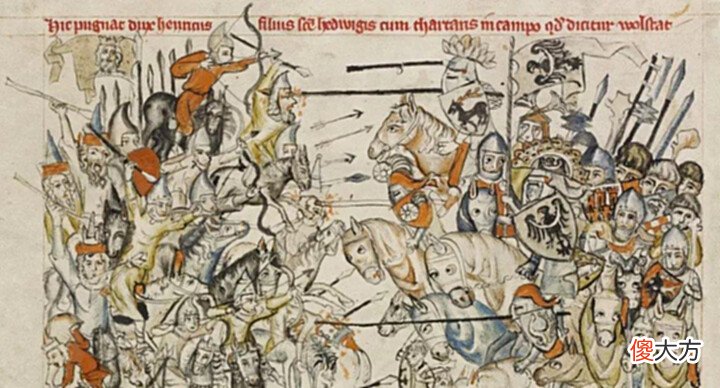 Hic pugnat dux henricus filius sce hedwigis cum thartaris in campo qd dicitur wolstat
傻大方